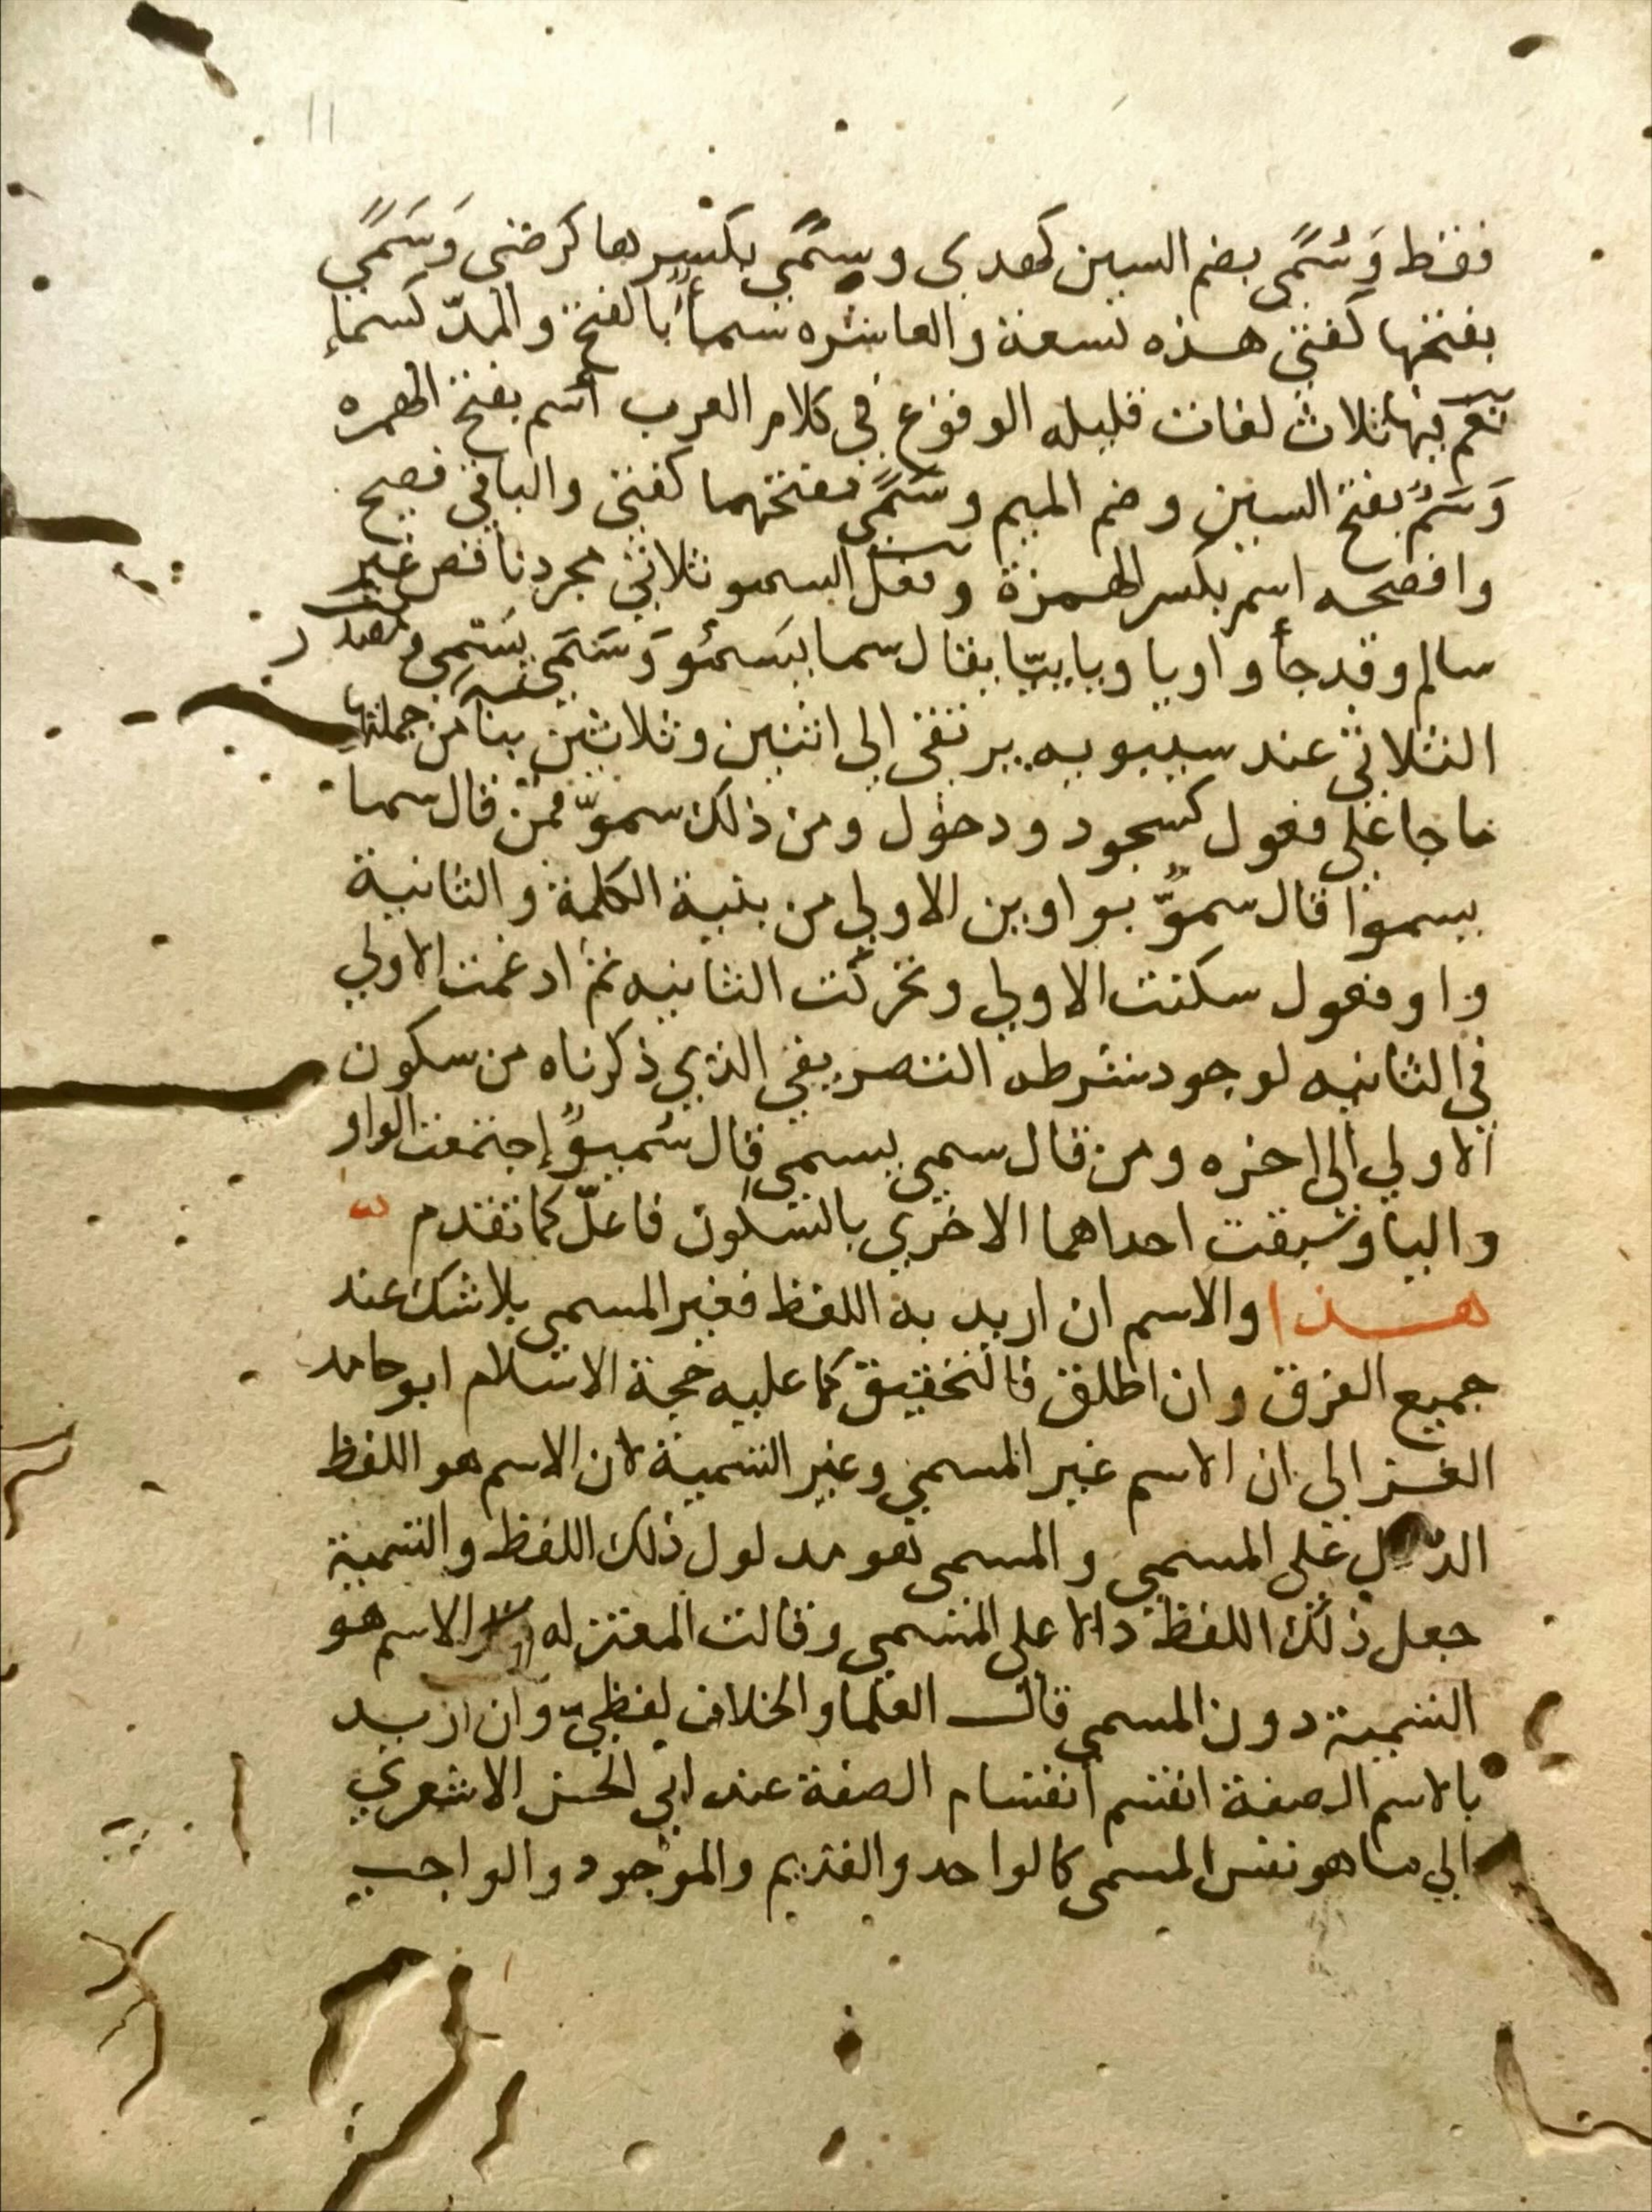 11
فقط وَسُمًى بضم السين كهدى وسِمًى بكسرها كرضى وَسَمًى
بفتحها كفتى هذه تسعة والعاشره سماءٌ بالفتح والمدّ كسماءِ
نعم فيها ثلاث لغات قليله الوقوع في كلام العرب أسم بفتح الهمزه
وَسَمُ بفتح السين وضم الميم وسَمًى بفتحهما كفتى والباقي فصيح
وافصحه اسم بكسر الهمزة وفعل السمو ثلاثي مجرد ناقص غير
سالم وقد جأ واويا وياييّا يقال سما يسمُو وَسَمَى يسمى ومصدر
الثلاثي عند سيبويه يرتقى الى اثنين وثلاثين بنآ من جملتها
ما جا على فعول كسجود ودخول ومن ذلك سموّ فمن قال سما
يسموا قال سموٌّ بواوين الاولى من بنية الكلمة والثانية
واو فعول سكنت الاولى وتحركت الثانيه ثم ادغمت الاولى
في الثانيه لوجود شرطه التصريفي الذي ذكرناه من سكون
الاولى الى اخره ومن قال سمى يسمى قال سُميوٌ إجتمعت الواو
واليا وسبقت احداهما الاخرى بالسكون فاعلّ كما تقدم
هذا والاسم ان اريد به اللفظ فغير المسمى بلا شك عند
جميع الفرق وان اطلق فالتحقيق كما عليه حجة الاسلام ابو حامد
الغزالي ان الاسم غير المسمى وغير التسمية لان الاسم هو اللفظ
الدّال على المسمى والمسمى هو مدلول ذلك اللفظ والتسمية
جعل ذلك اللفظ دالا على المسمى وقالت المعتزله الاسم هو
التسمية دون المسمى قال العلما والخلاف لفظيّ وان اريد
بالاسم الصفة انقسم أنقسام الصفة عند ابي الحسن الاشعري
الى ما هو نفس المسمى كالواحد والقديم والموجود والواجب